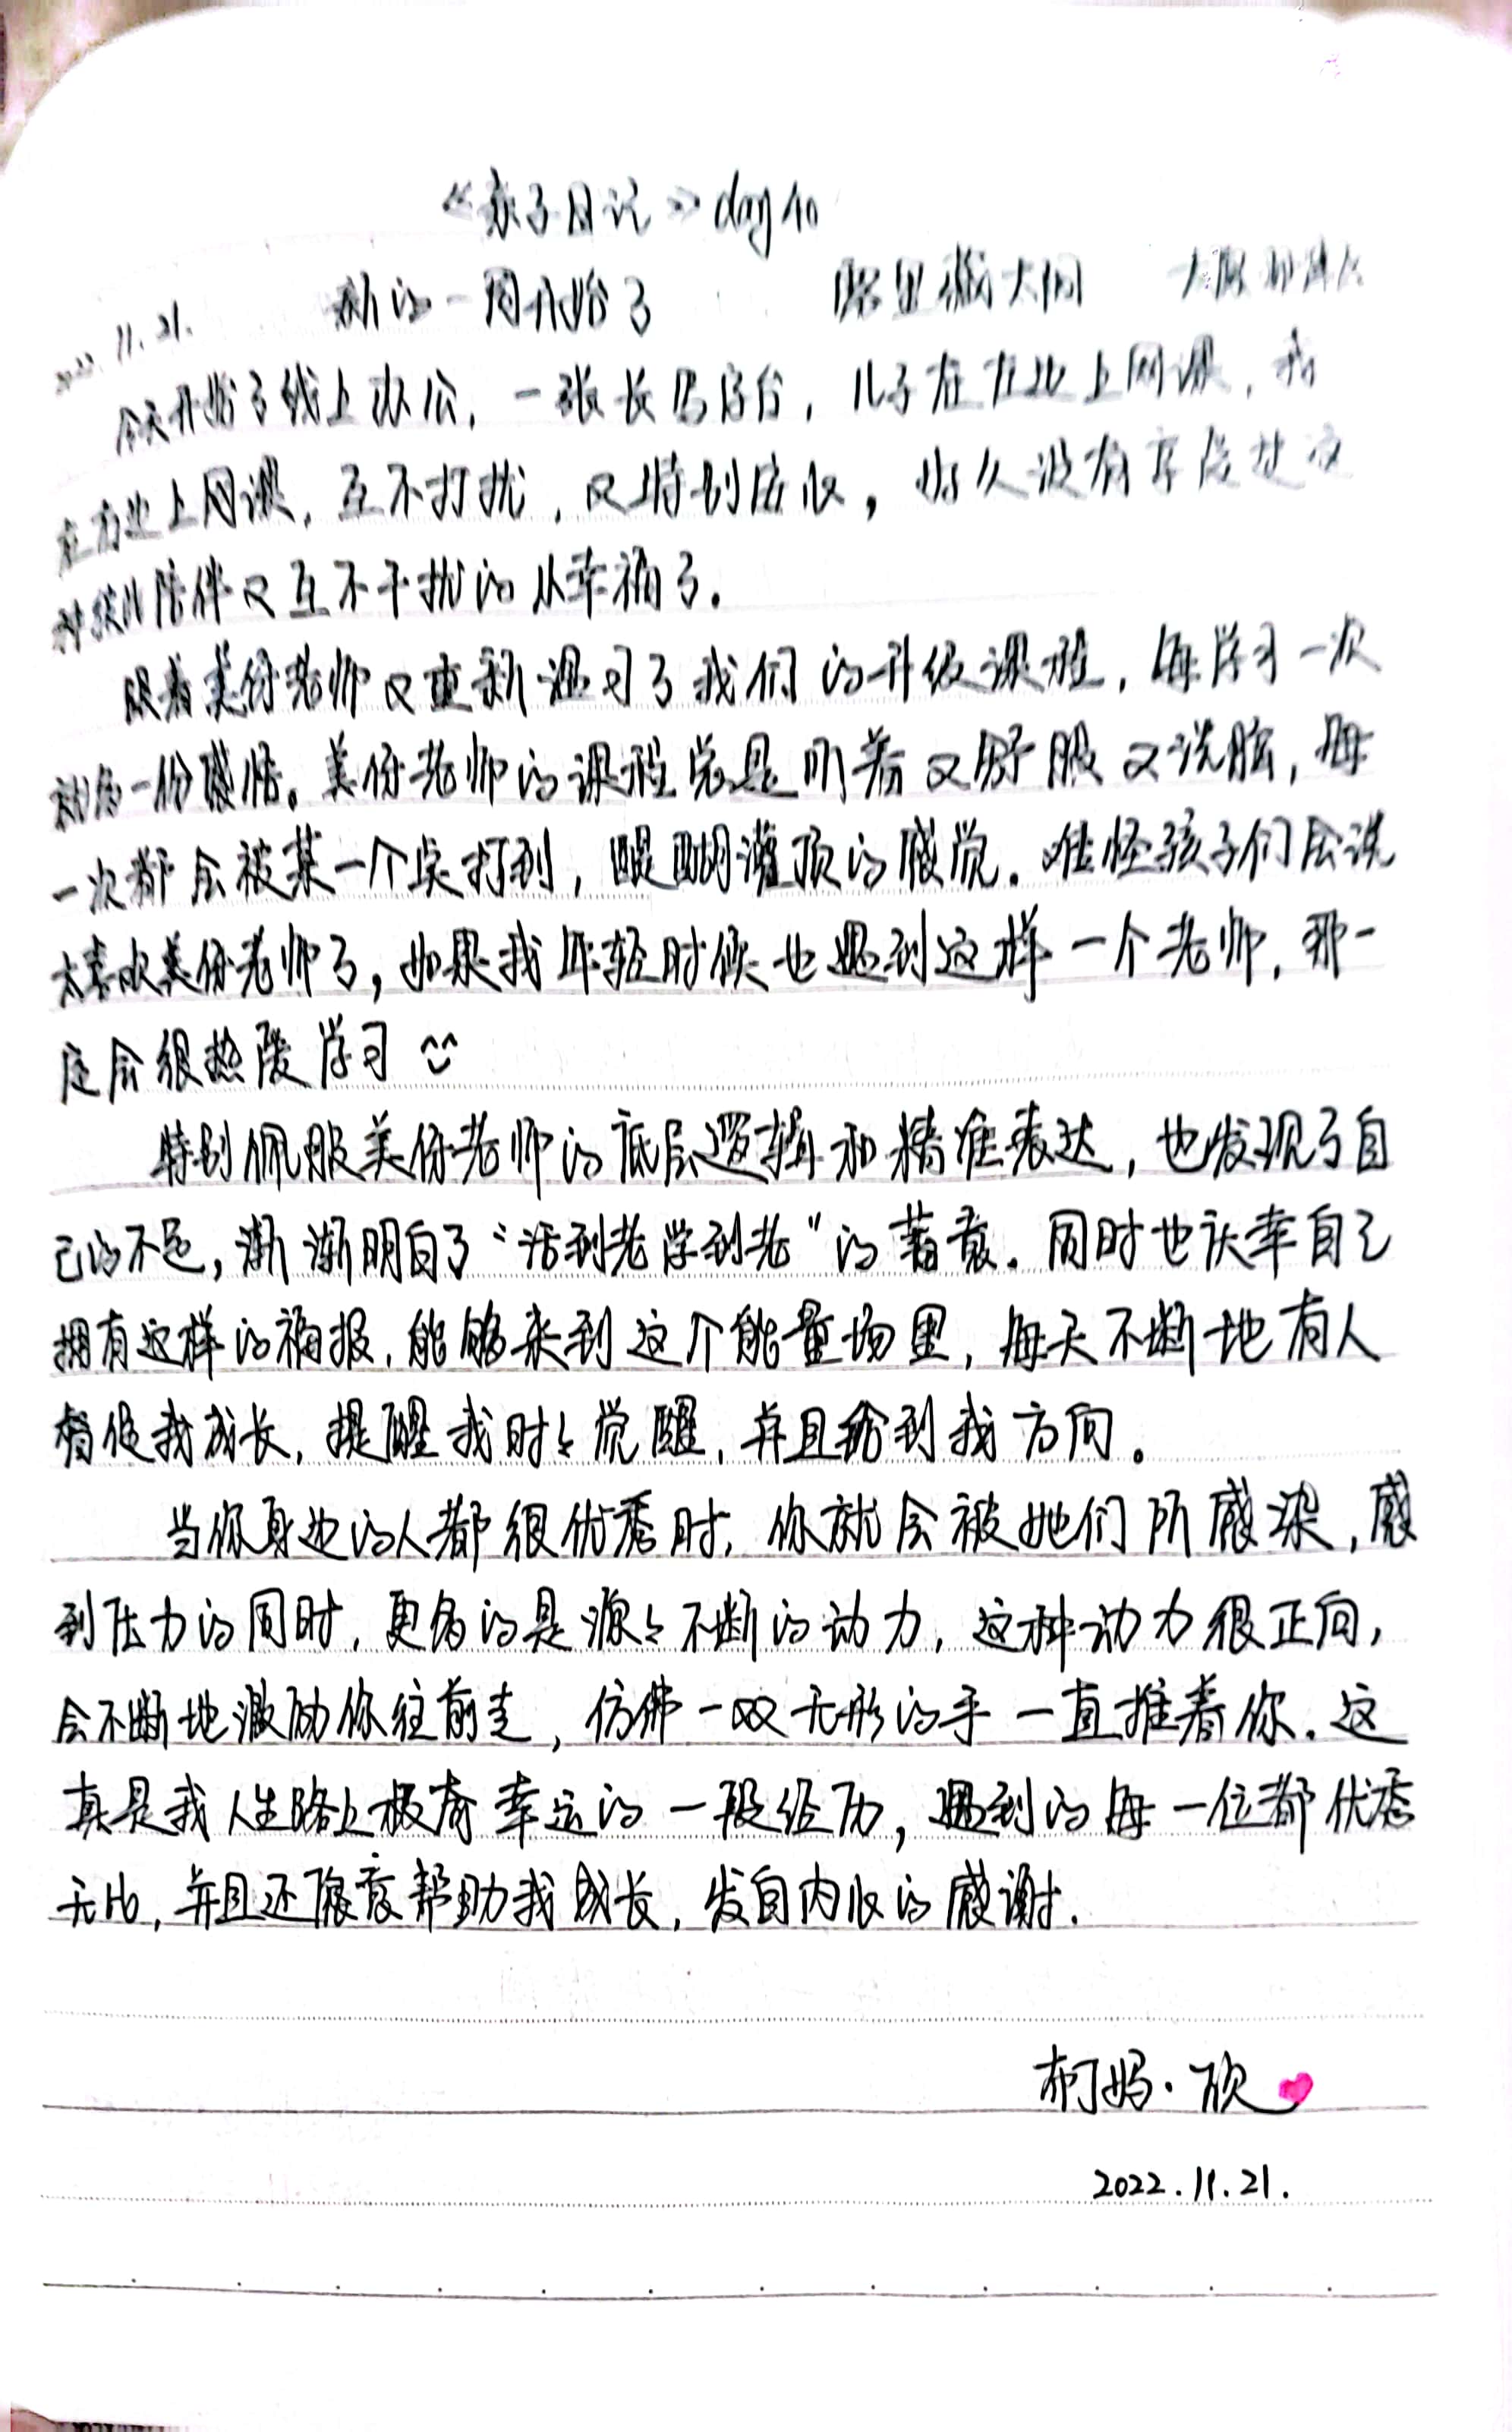 《亲子日记》day10
2022.11.21. 新的一周开始了
今天开始了线上办公，一张长写字台，儿子在左边上网课，我
在右边上网课，互不打扰，又特别安心，好久没有享受过这
种彼此陪伴又互不干扰的小幸福了.
跟着美份老师又重新温习了我们的升级课程，每学习一次
就多一份感悟。美份老师的课程总是听着又舒服又洗脑，每
一次都会被某一个点打到，醍醐灌顶的感觉。难怪孩子们会说
太喜欢美份老师了，如果我年轻时候也遇到这样一个老师，那一
定会很热爱学习
特别佩服美份老师的底层逻辑和精准表达，也发现了自
己的不足，渐渐明白了“活到老学到老”的含义。同时也庆幸自己
拥有这样的福报，能够来到这个能量场里，每天不断地有人
督促我成长，提醒我时时觉醒，并且给到我方向。
当你身边的人都很优秀时，你就会被她们所感染，感
到压力的同时，更多的是源源不断的动力，这种动力很正向，
会不断地激励你往前走，仿佛一双无形的手一直推着你.这
真是我人生路上极为幸运的一段经历，遇到的每一位都优秀
无比，并且还愿意帮助我成长，发自内心的感谢.
柯妈·欣
2022.11.21.